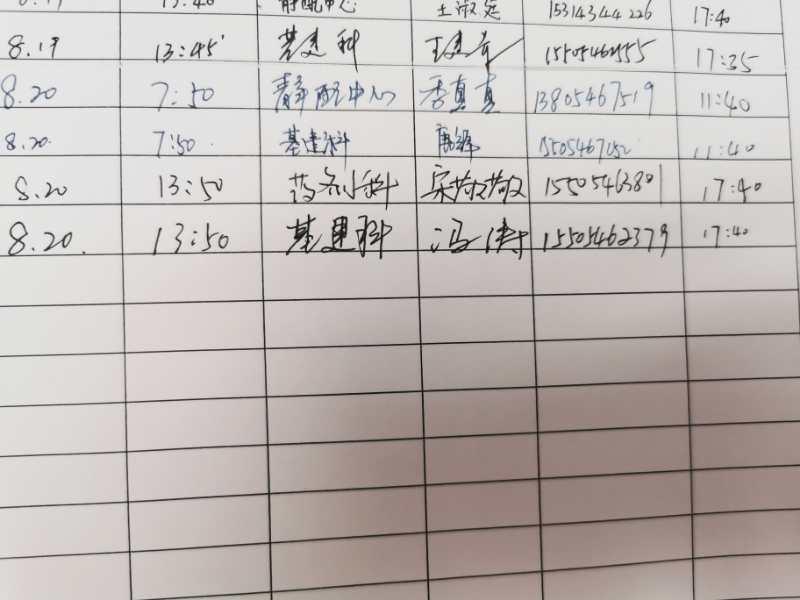 13:40 静配中心 王淑廷 15314344226 17:40
8.19 13:45 基建科 15505462455 17:35
8.20 7:50 静配中心 季真真 13805467519 11:40
8.20. 7:50. 基建科 11:40
8.20 13:50 药剂科 宋敬敬 15505463801 17:40
8.20. 13:50 基建科 冯涛 15505462379 17:40